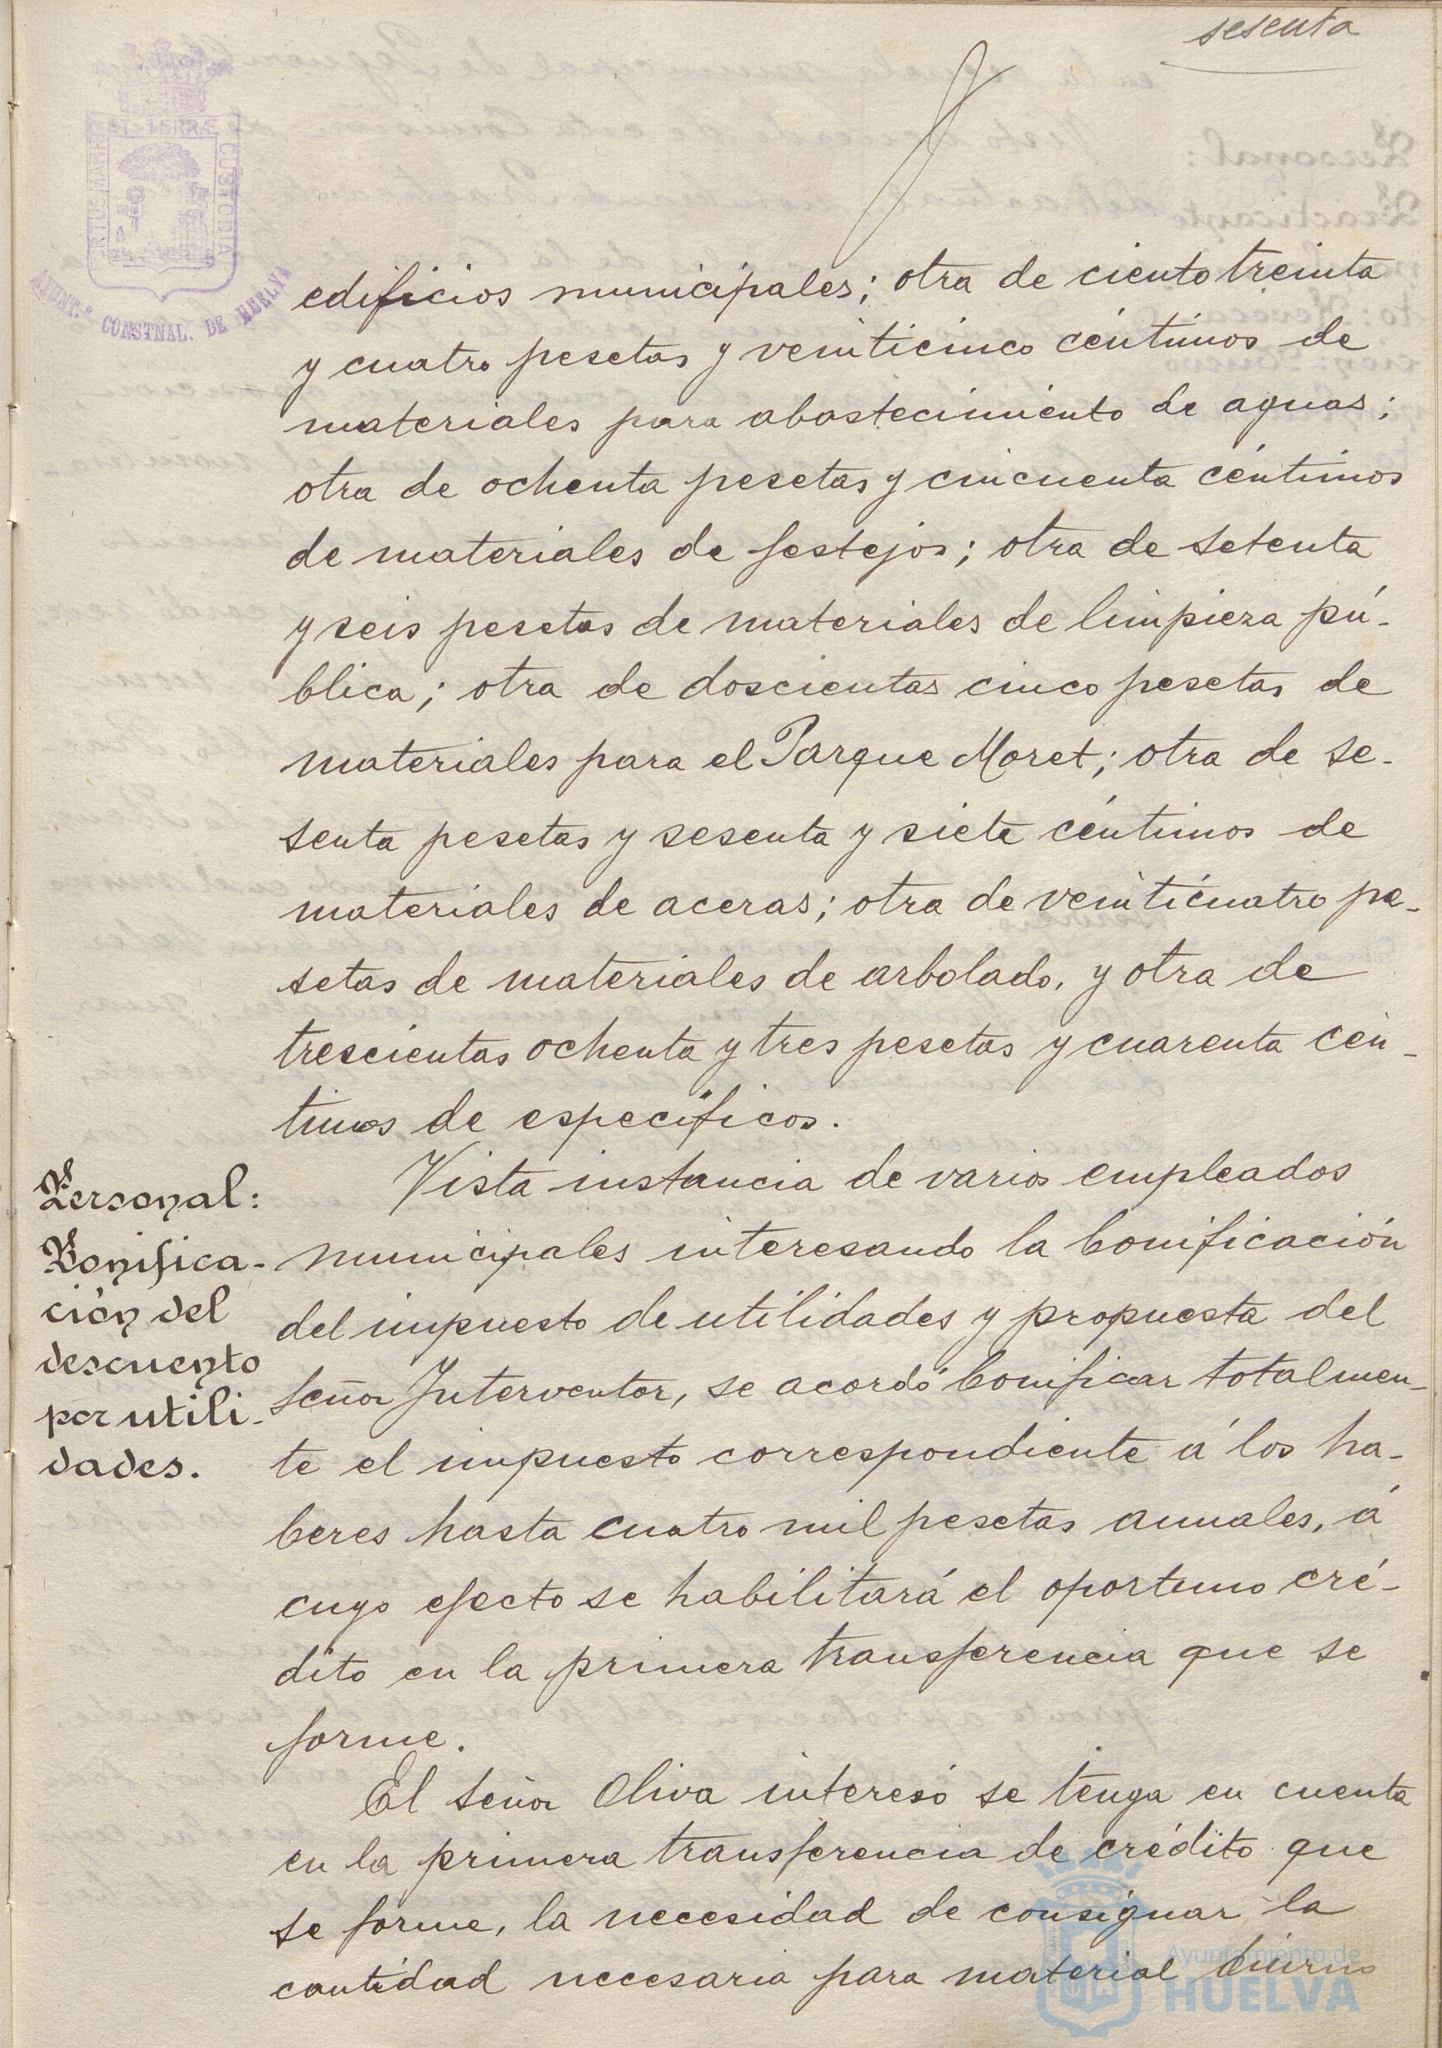 sesenta
PORTUS MARIS ET TERRÆ CUSTODIA
AYUNT.º CONSTNAL. DE HUELVA
edificios municipales; otra de ciento treinta
y cuatro pesetas y veinticinco céntimos de
materiales para abastecimiento de aguas;
otra de ochenta pesetas y cincuenta céntimos
de materiales de festejos; otra de setenta
y seis pesetas de materiales de limpieza pú-
blica; otra de doscientas cinco pesetas de
materiales para el Parque Moret; otra de se-
senta pesetas y sesenta y siete céntimos de
materiales de aceras; otra de veinticuatro pe-
setas de materiales de arbolado, y otra de
trescientas ochenta y tres pesetas y cuarenta cén-
timos de específicos.
Personal:
Bonifica-
ción del
descuento
por utili-
dades.
Vista instancia de varios empleados
municipales interesando la bonificación
del impuesto de utilidades y propuesta del
señor Interventor, se acordó bonificar totalmen-
te el impuesto correspondiente á los ha-
beres hasta cuatro mil pesetas anuales, á
cuyo efecto se habilitará el oportuno cré-
dito en la primera transferencia que se
forme.
El señor Oliva interesó se tenga en cuenta
en la primera transferencia de crédito que
se forme, la necesidad de consignar la
cantidad necesaria para material diurno
Ayuntamiento de
HUELVA